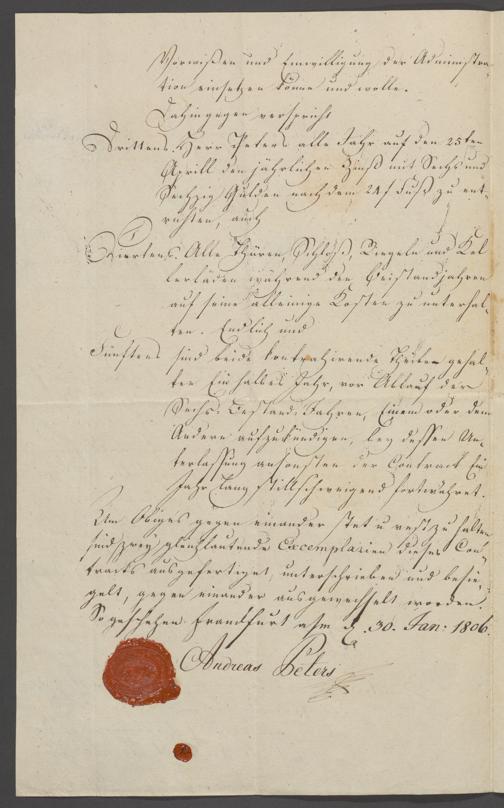 Vorwißen und Einwilligung der Administra-
tion einsetzen könne und wolle.
Dahingegen verspricht
Drittens. Herr Peters alle Jahr auf den 25ten
Aprill den jährlichen Zinß mit Sechs und
Sechzig Gulden nach dem 24 f Fuß zu ent-
richten, auch
Viertens. Alle Thüren, Schlößer, Riegeln und Kel-
lerläden während den Beistandjahren
auf seine alleinige Kosten zu unterhal-
ten. Endlich und
Fünftens sind beide kontrahirende Theile gehal-
ten Ein halbes Jahr, vor Ablauf der
Sechs Bestand Jahren, Einem oder dem
Andern aufzukündigen, bey dessen Un-
terlassung ansonsten der Contract Ein
Jahr lang stillschweigend fortwähret.
Um Obiges gegen einander stet u vest zu halten
sind zwey gleichlautende Exemplarien dieses Con-
tracts ausgefertiget, unterschrieben und besie-
gelt, gegen einander ausgewechselt worden.
So geschehen Frankfurt a/m d. 30. Jan: 1806.
Andreas Peters